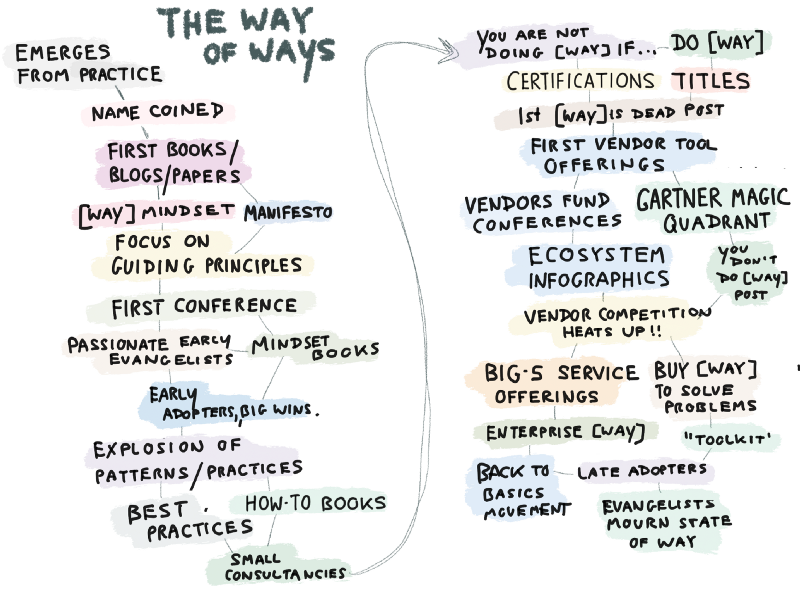 THE WAY
OF WAYS
EMERGES
FROM PRACTICE
NAME COINED
FIRST BOOKS/
BLOGS/PAPERS
[WAY] MINDSET
MANIFESTO
FOCUS ON
GUIDING PRINCIPLES
FIRST CONFERENCE
PASSIONATE EARLY
EVANGELISTS
MINDSET
BOOKS
EARLY
ADOPTERS, BIG WINS.
EXPLOSION OF
PATTERNS/PRACTICES
BEST
PRACTICES
HOW-TO BOOKS
SMALL
CONSULTANCIES
YOU ARE NOT
DOING [WAY] IF...
DO [WAY]
CERTIFICATIONS
TITLES
1st [WAY] IS DEAD POST
FIRST VENDOR TOOL
OFFERINGS
VENDORS FUND
CONFERENCES
GARTNER MAGIC
QUADRANT
ECOSYSTEM
INFOGRAPHICS
YOU
DON'T
DO [WAY]
POST
VENDOR COMPETITION
HEATS UP!!
BIG-5 SERVICE
OFFERINGS
BUY [WAY]
TO SOLVE
PROBLEMS
ENTERPRISE [WAY]
"TOOLKIT"
BACK TO
BASICS
MOVEMENT
LATE ADOPTERS
EVANGELISTS
MOURN STATE
OF WAY